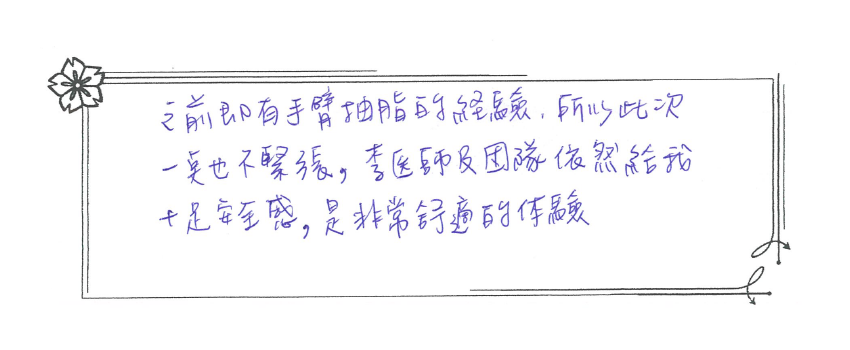 之前即有手臂抽脂的経驗，所以此次
一奌也不緊張，李医師及团隊依然給我
十足安全感，是非常舒適的体驗